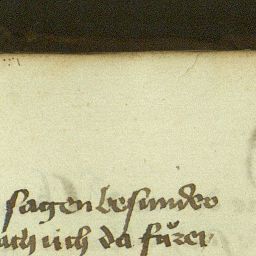 sagen besunder
ach üch da fürer